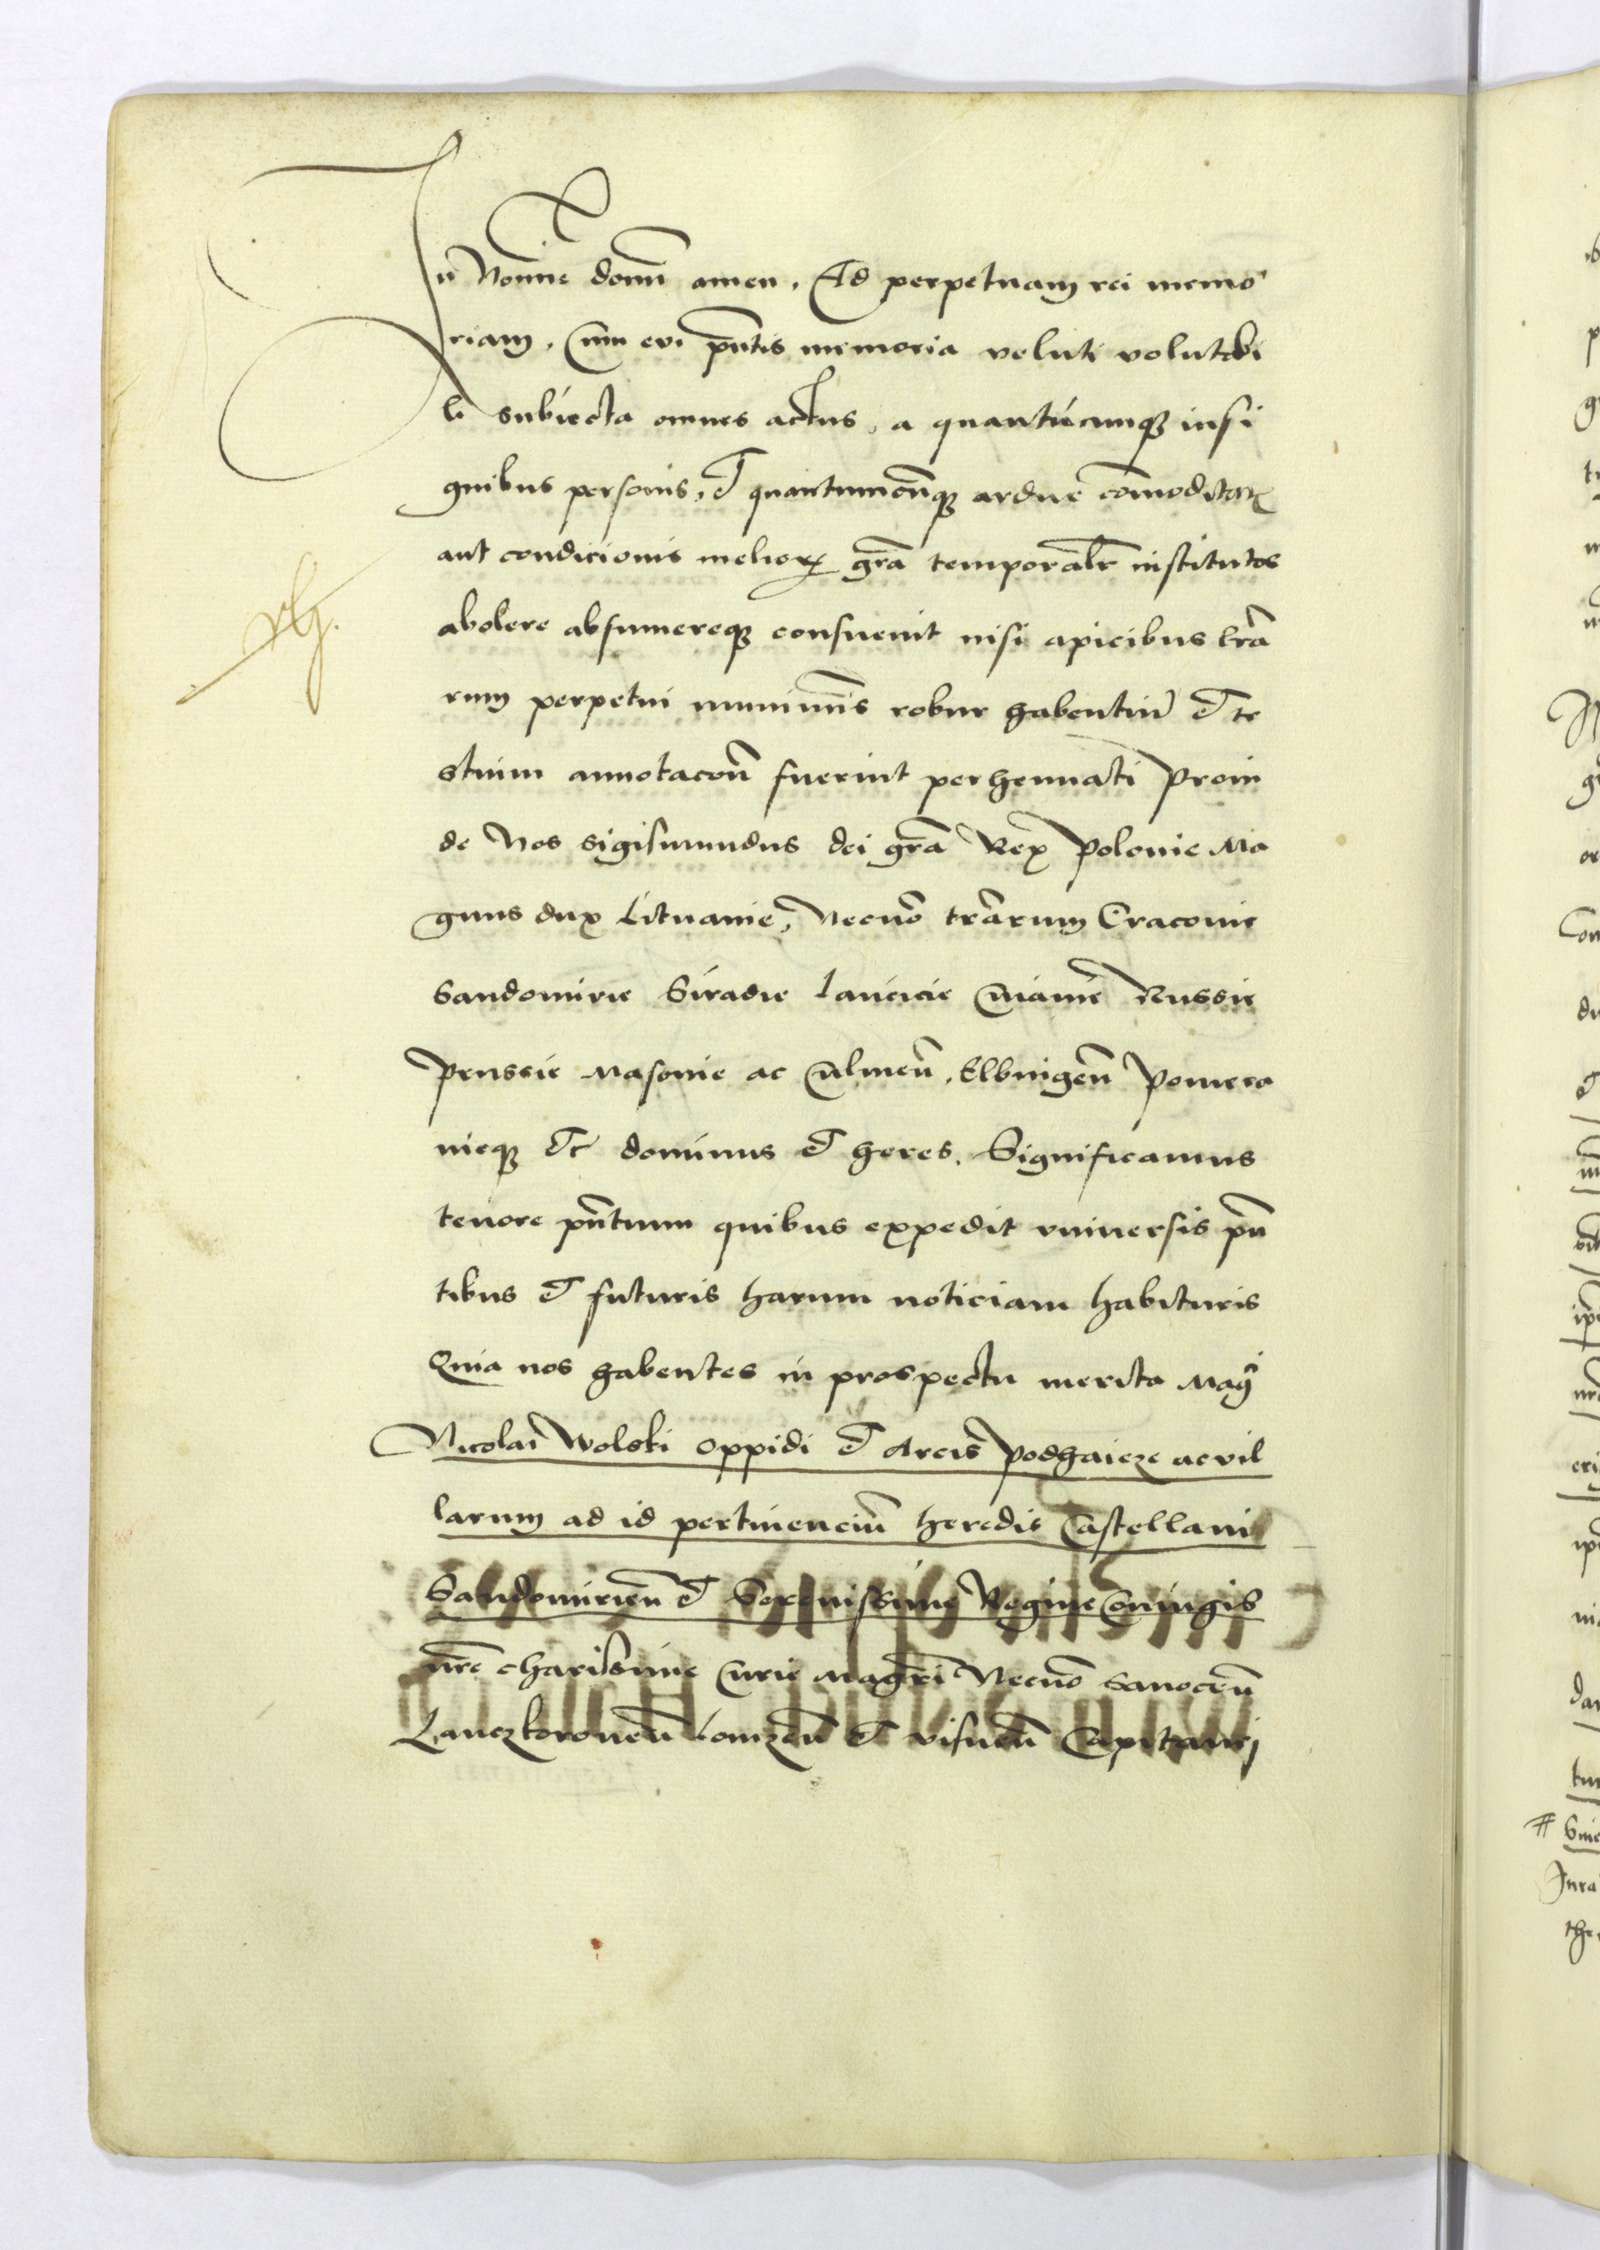 In Nomine domini amen. Ad perpetuam rei memo
riam. Cum evi pñtis memoria veluti volutabi
li subiecta omnes actus, a quantúcunqȝ insi
gnibus personis, et quantumcũqȝ ardue cõmoditatis
aut condicionis meliorꝝ grã temporalr̃ institutos
abolere absumereqȝ consuevit nisi apicibus lrã
rum perpetui muniminis robur habentiũ et te
stuim annotacoñ fuerint perhennati Proin
de Nos Sigismundus dei grã Rex Polonie Ma
gnus dux Lituanie, Necnõ trãrum Cracovie
Sandomirie Siradie Lancicie Cuiavie Russie
Prussie Masovie ac Culmeñ. Elbingeñ Pomera
nieqȝ etc dominus et heres. Significamus
tenore pñtium quibus expedit vniversis pñ
tibus et futuris harum noticiam habituris
Quia nos habentes in prospectu merita Mag̃
Nicolai Wolski oppidi et Arcis Podhaicze ac vil
larum ad id pertinenciũ heredis Castellani
Sandomirieñ et Serenissime Regine Coniugis
nr̃e charissime Curie Magr̃i Necnõ Sanoceñ
Lanczkoroneñ Lomzeñ et visneñ Capitanei